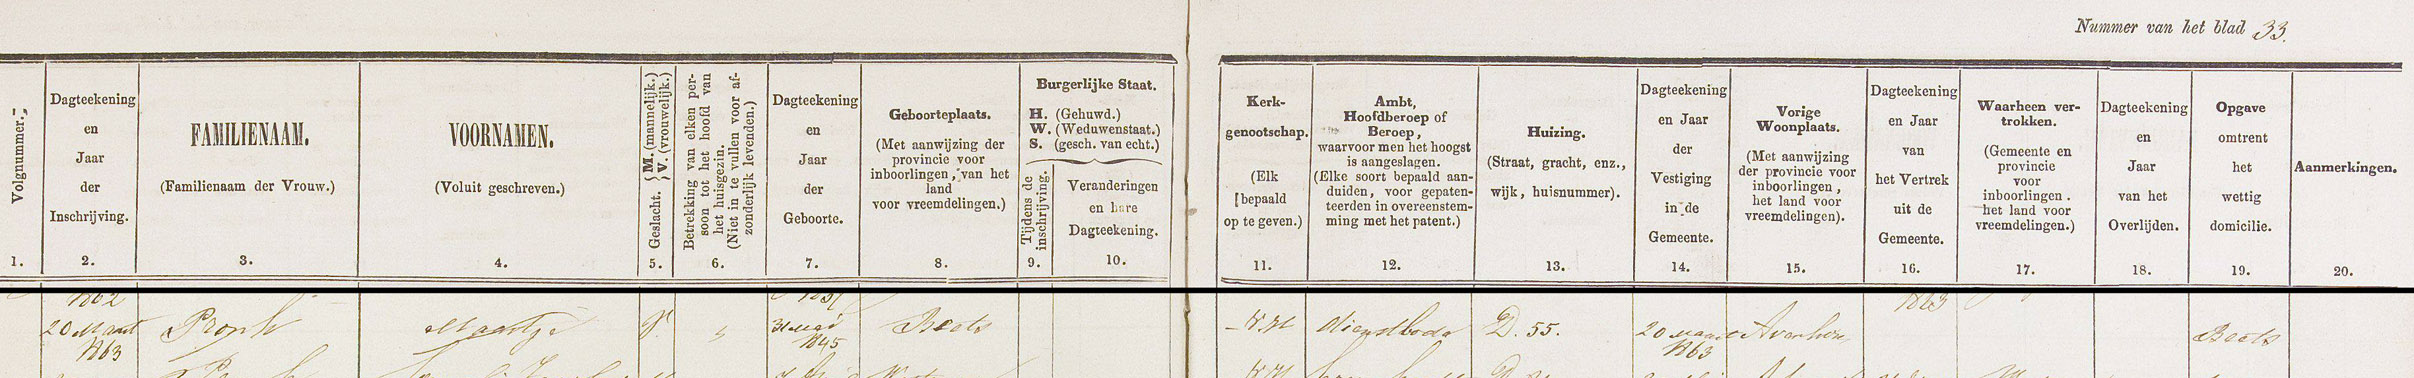 Nummer van het blad 33.
Volgnummer.
1.
Dagteekening
en
Jaar
der
Inschrijving.
2.
FAMILIENAAM.
(Familienaam der Vrouw.)
3.
VOORNAMEN.
(Voluit geschreven.)
4.
Geslacht. M. (mannelijk.)
V. (vrouwelijk.)
5.
Betrekking van elken per-
soon tot het hoofd van
het huisgezin.
(Niet in te vullen voor af-
zonderlijk levenden.)
6.
Dagteekening
en
Jaar
der
Geboorte.
7.
Geboorteplaats.
(Met aanwijzing der
provincie voor
inboorlingen, van het
land
voor vreemdelingen.)
8.
Burgerlijke Staat.
H. (Gehuwd.)
W. (Weduwenstaat.)
S. (gesch. van echt.)
Tijdens de
inschrijving.
9.
Veranderingen
en hare
Dagteekening.
10.
Kerk-
genootschap.
(Elk
bepaald
op te geven.)
11.
Ambt,
Hoofdberoep of
Beroep,
waarvoor men het hoogst
is aangeslagen.
(Elke soort bepaald aan-
duiden, voor gepaten-
teerden in overeenstem-
ming met het patent.)
12.
Huizing.
(Straat, gracht, enz.,
wijk, huisnummer).
13.
Dagteekening
en Jaar
der
Vestiging
in de
Gemeente.
14.
Vorige
Woonplaats.
(Met aanwijzing
der provincie voor
inboorlingen,
het land voor
vreemdelingen).
15.
Dagteekening
en Jaar
van
het Vertrek
uit de
Gemeente.
16.
Waarheen ver-
trokken.
(Gemeente en
provincie
voor
inboorlingen.
het land voor
vreemdelingen.)
17.
Dagteekening
en
Jaar
van het
Overlijden.
18.
Opgave
omtrent
het
wettig
domicilie.
19.
Aanmerkingen.
20.
1862
1863
20 Maart
1863
Pronk
Maartje
V.
31 mei
1845
Beets
N.H
dienstbode
D. 55.
20 maart
1863
Avenhorn
Beets